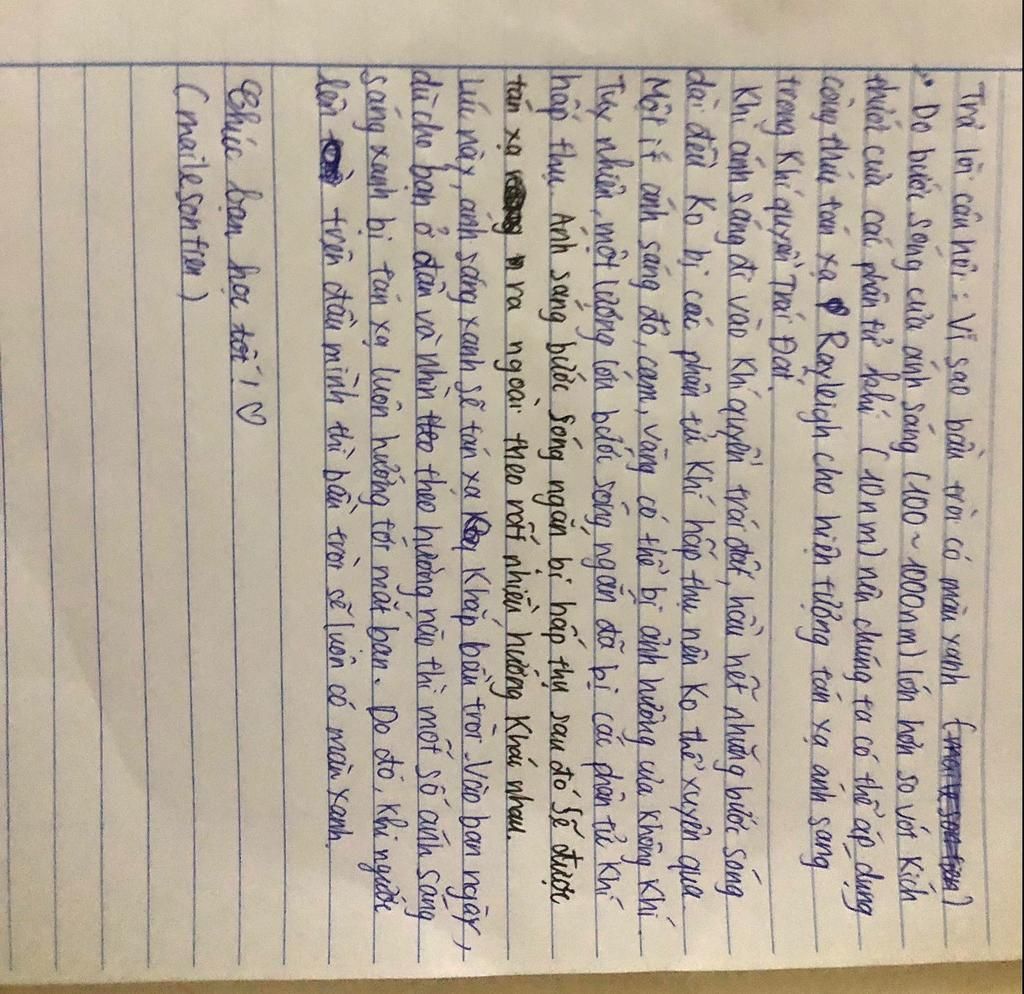 Trả lời câu hỏi : Vì sao bầu trời có màu xanh
• Do bước sóng của ánh sáng (100 ~ 1000nm) lớn hơn so với kích
thước của các phân tử khí (10nm) nên chúng ta có thể áp dụng
công thức tán xạ Rayleigh cho hiện tượng tán xạ ánh sang
trong Khí quyển Trái Đất.
Khi ánh sáng đi vào Khí quyển trái đất, hầu hết những bước sóng
dài đều Ko bị các phân tử Khí hấp thụ nên Ko thể xuyên qua
Một ít ánh sáng đỏ, cam, vàng có thể bị ảnh hưởng của Không Khí.
Tuy nhiên, một lượng lớn bước sóng ngắn đã bị các phân tử Khí
hấp thụ. Ánh sang bước sóng ngắn bị hấp thụ sau đó sẽ được
tán xạ ra ngoài theo rất nhiều hướng Khác nhau.
Lúc này, ánh sáng xanh sẽ tán xạ Khắp bầu trời. Vào ban ngày,
dù cho bạn ở đâu và nhìn theo theo hướng nào thì một số ánh sáng
sáng xanh bị tán xạ luôn hướng tới mắt bạn. Do đó, Khi người
lên trên đầu mình thì bầu trời sẽ luôn có màu xanh.
Chúc bạn học tốt! ♡
(mailesontren)